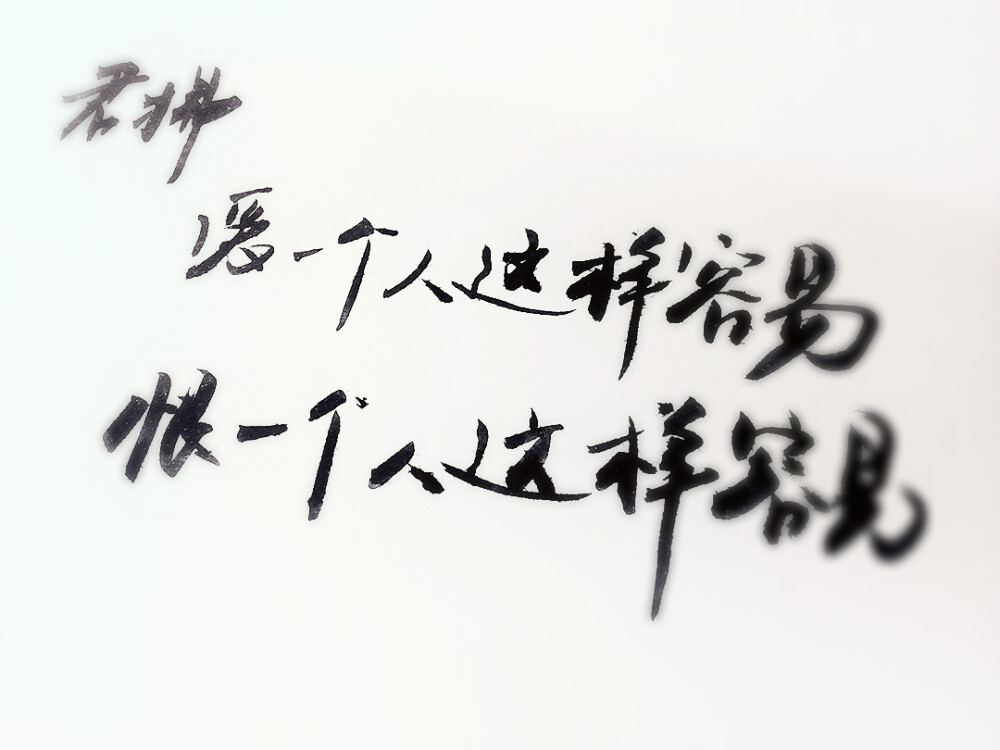 君拂
爱一个人这样容易
恨一个人这样容易